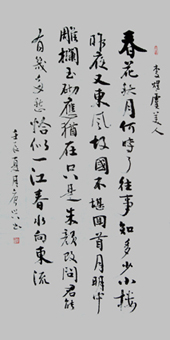 李煜虞美人
春花秋月何時了往事知多少小樓
昨夜又東風故國不堪回首月明中
雕欄玉砌應猶在只是朱顔改問君能
有幾多愁恰似一江春水向東流
壬辰夏月